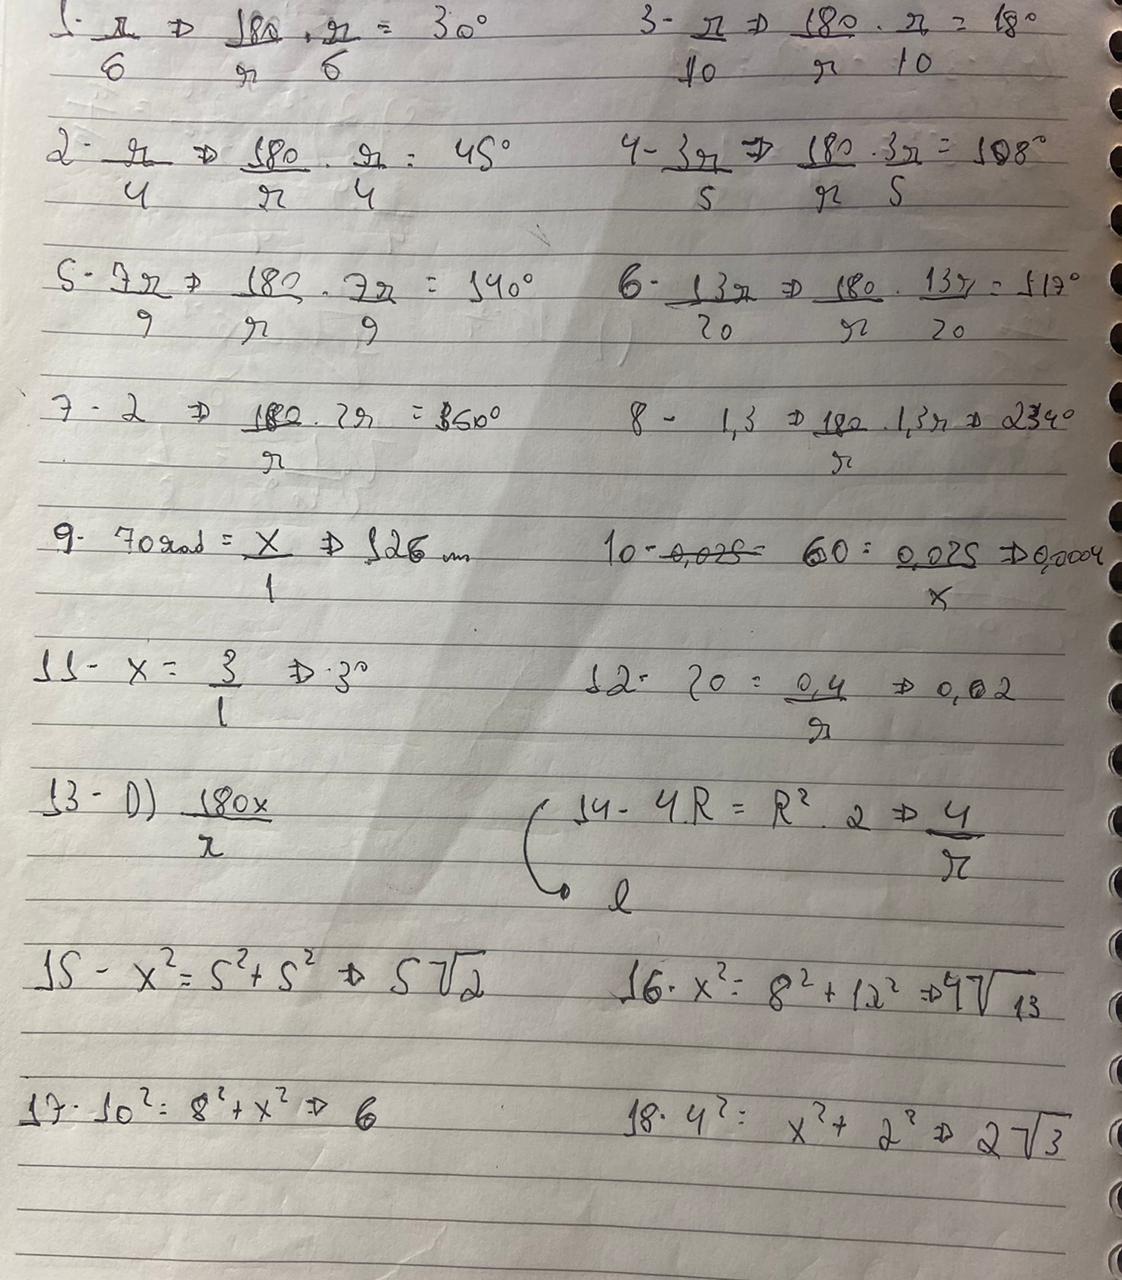 1- π/6 ⇒ 180/π . π/6 = 30° 3- π/10 ⇒ 180/π . π/10 = 18°
2- π/4 ⇒ 180/π . π/4 = 45° 4- 3π/5 ⇒ 180/π . 3π/5 = 108°
5- 7π/9 ⇒ 180/π . 7π/9 = 140° 6- 13π/20 ⇒ 180/π . 13π/20 = 117°
7- 2 ⇒ 180/π . 2π = 360° 8- 1,3 ⇒ 180/π . 1,3π ⇒ 234°
9- 70rad = x/1 ⇒ 126 m 10- 0,025= 60 = 0,025/x ⇒ 0,0004
11- x = 3/1 ⇒ 3° 12- 20 = 0,4/π ⇒ 0,02
13- D) 180x/π 14- 4R = R² . 2 ⇒ 4/π
l
15- x² = 5²+5² ⇒ 5√2 16- x² = 8²+12² ⇒ 4√13
17- 10² = 8²+x² ⇒ 6 18- 4² = x²+ 2² ⇒ 2√3